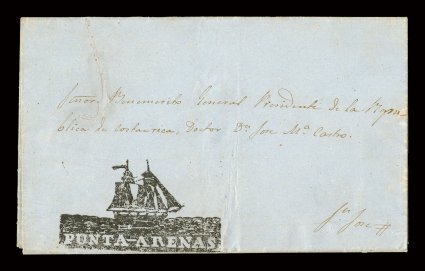 Señor Benemerito General Presidente de la Repu
blica de Costarrica, Doctor Dn. Jose Ma. Castro.
Sn. Jose
PUNTA-ARENAS